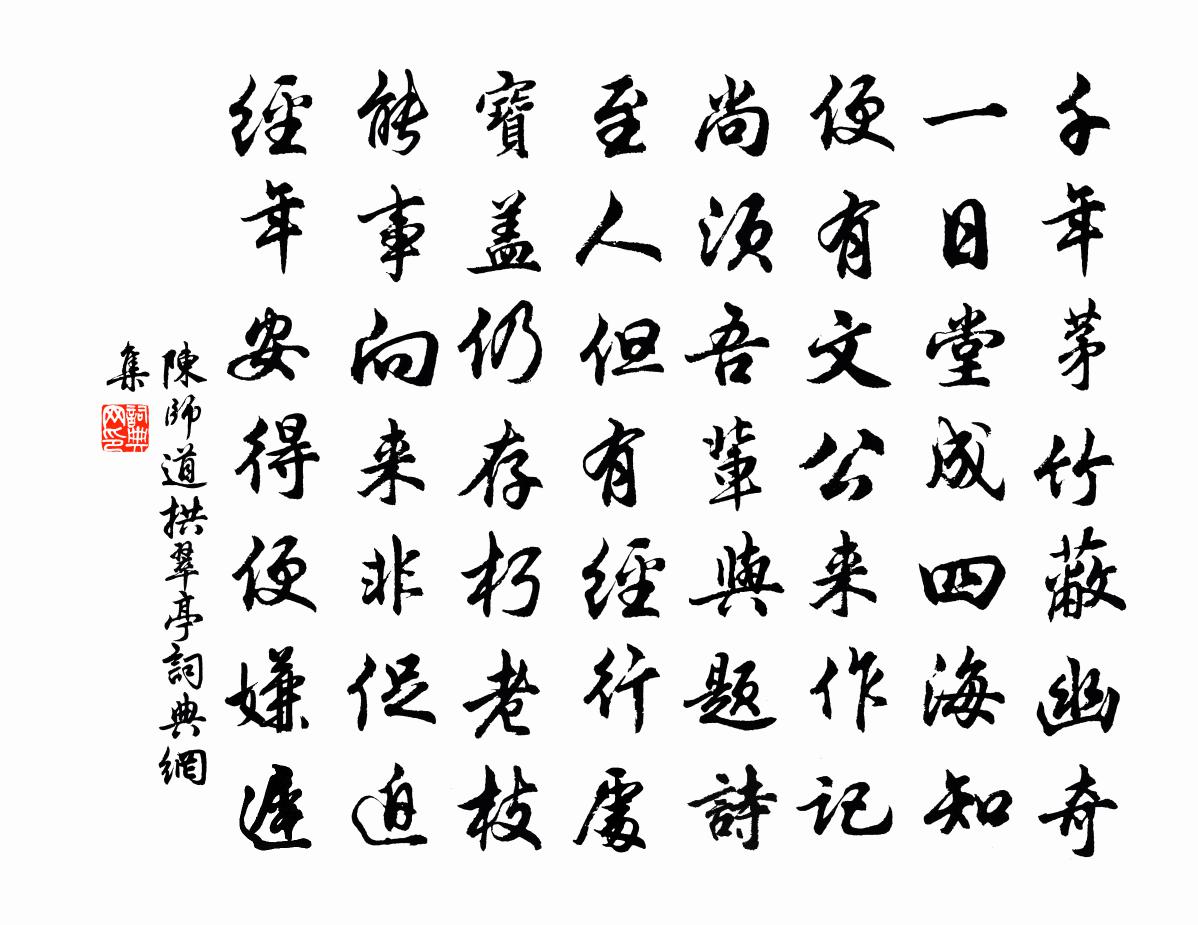 千年茅竹蔽幽奇
一日堂成四海知
便有文公来作記
尚須吾輩與題詩
至人但有經行處
寶盖仍存朽老枝
能事向来非促迫
經年安得便嫌遲
陳師道拱翠亭詞典網
集
詞典网印